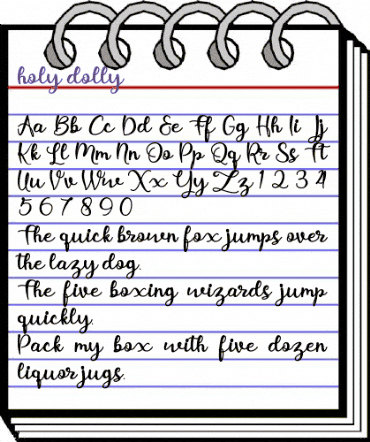 holy dolly
Aa Bb Cc Dd Ee Ff Gg Hh Ii Jj
Kk Ll Mm Nn Oo Pp Qq Rr Ss Tt
Uu Vv Ww Xx Yy Zz 1 2 3 4
5 6 7 8 9 0
The quick brown fox jumps over
the lazy dog.
The five boxing wizards jump
quickly.
Pack my box with five dozen
liquor jugs.